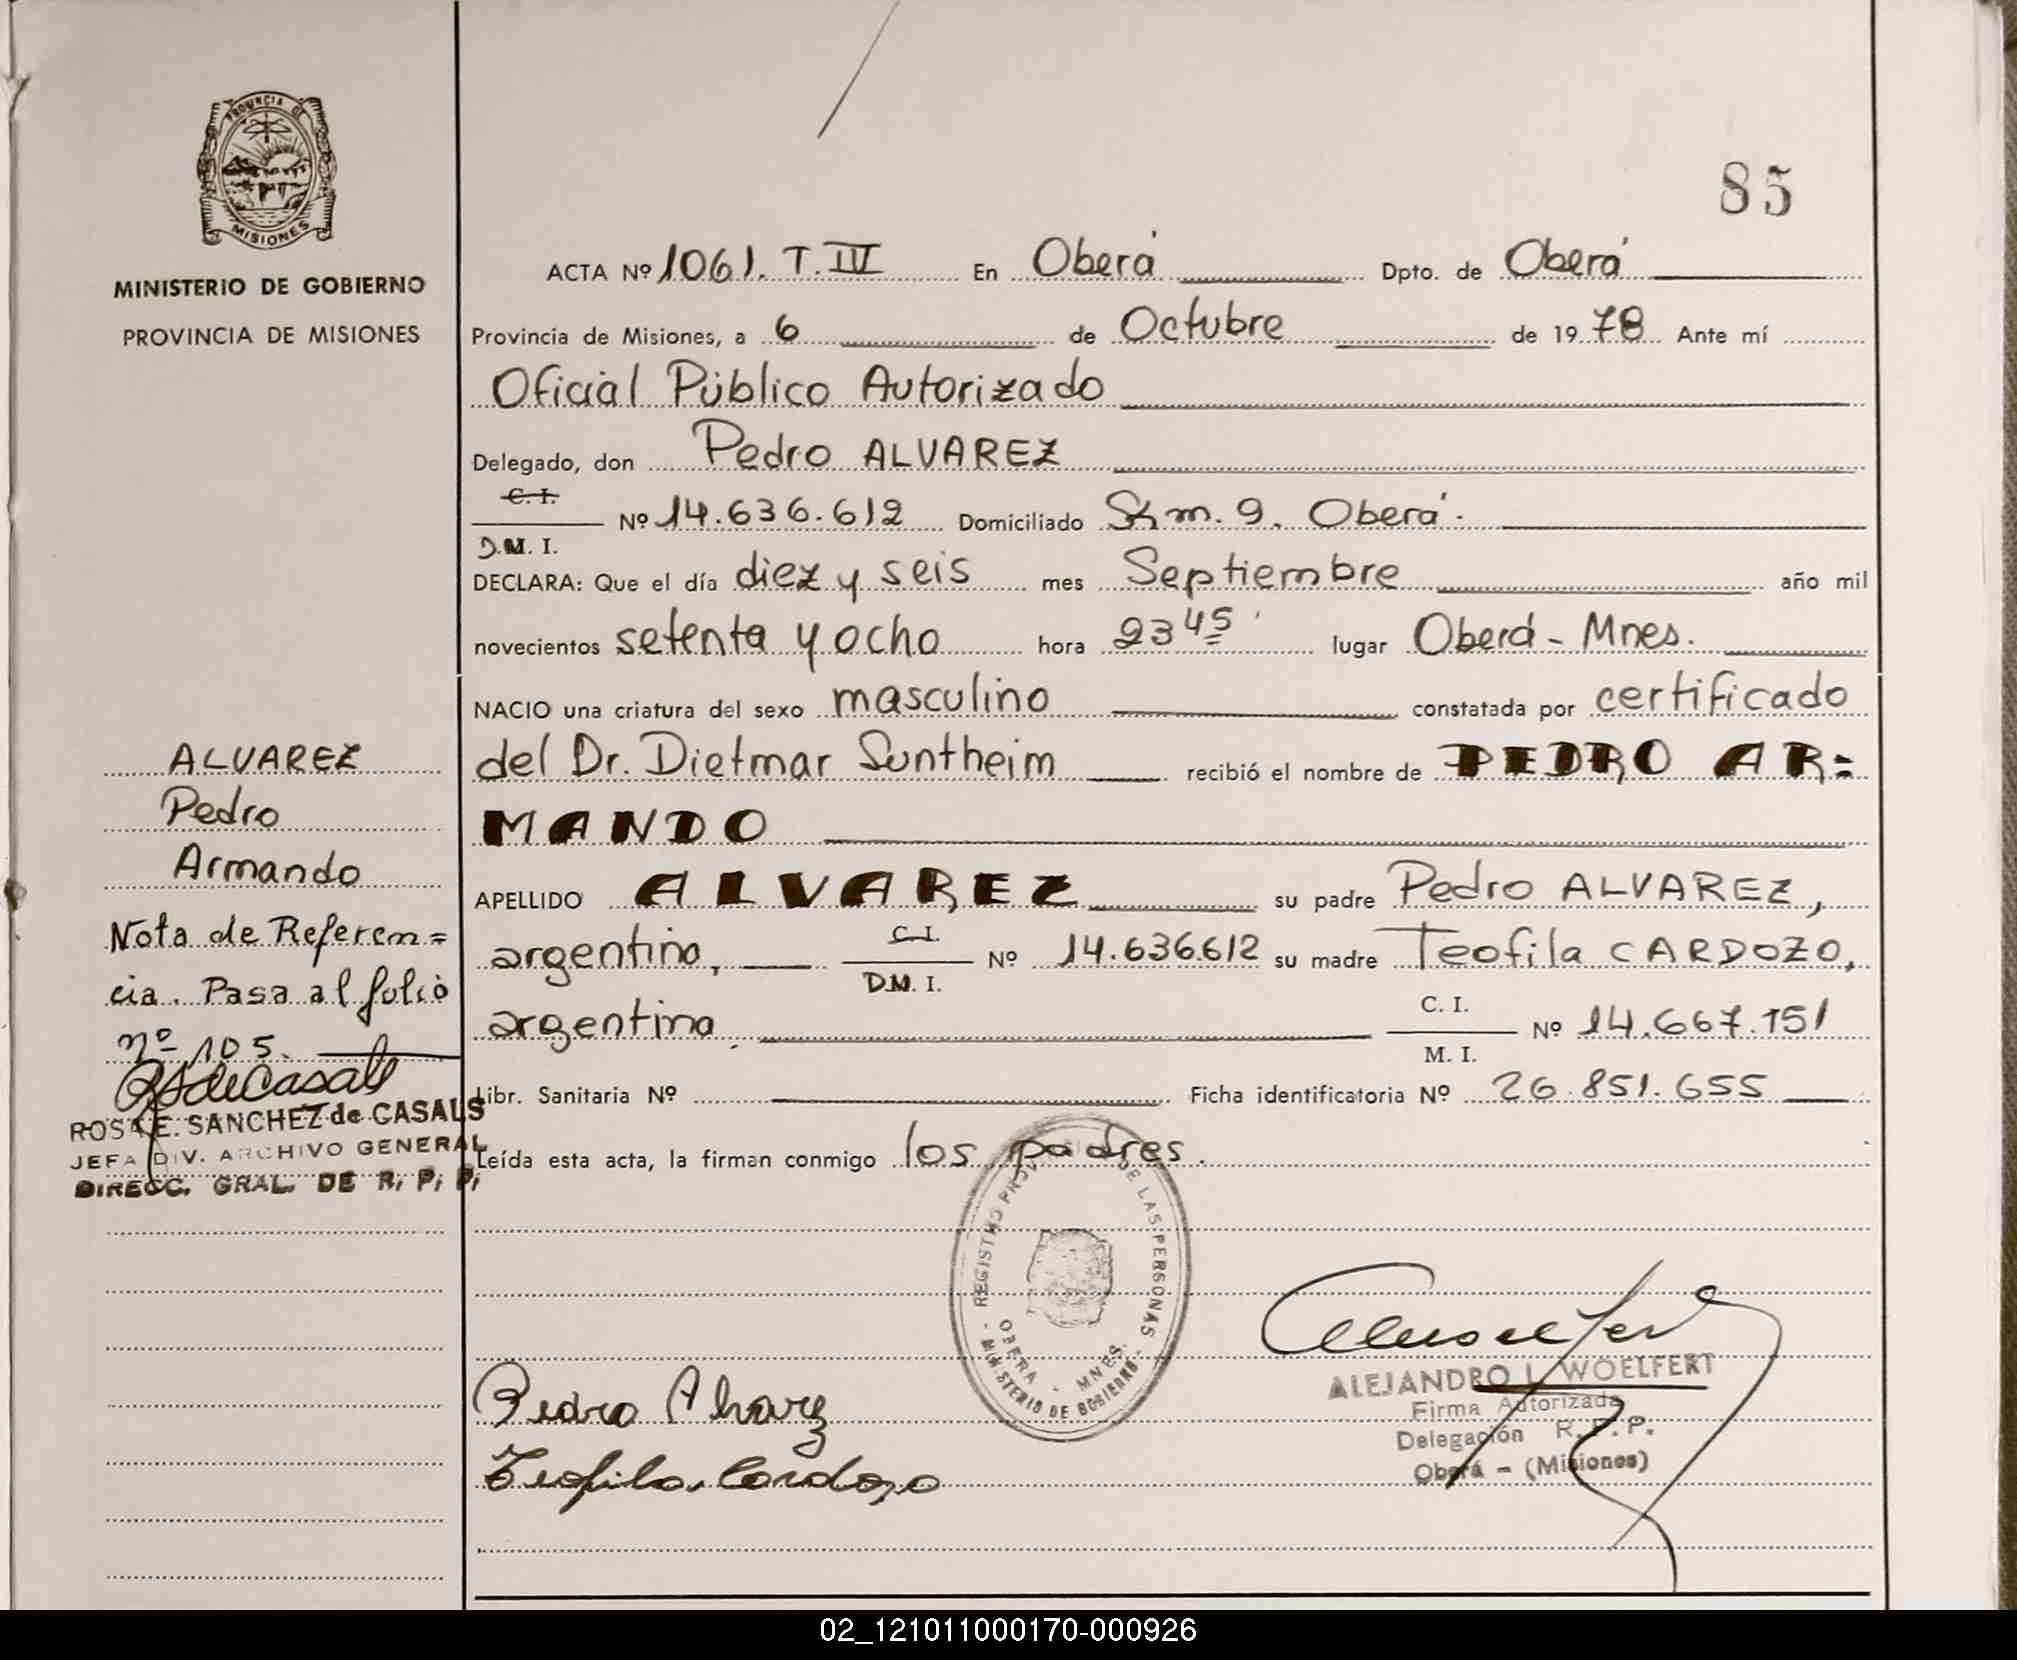 85
PROVINCIA DE
MISIONES
MINISTERIO DE GOBIERNO
PROVINCIA DE MISIONES
ACTA Nº 1061. T. III En Oberá Dpto. de Oberá
Provincia de Misiones, a 6 de Octubre de 1978 Ante mí
Oficial Público Autorizado
Delegado, don Pedro ALVAREZ
C. I.
Nº 14.636.612 Domiciliado Km. 9. Oberá.
D.M. I.
DECLARA: Que el día diez y seis mes Septiembre año mil
novecientos setenta y ocho hora 23 45 lugar Oberá - Mnes.
NACIO una criatura del sexo masculino constatada por certificado
del Dr. Dietmar Suntheim recibió el nombre de PEDRO AR=
MANDO
APELLIDO ALVAREZ su padre Pedro ALVAREZ,
argentino, C.I. Nº 14.636.612 su madre Teofila CARDOZO,
D.M. I.
argentina. C. I. Nº 14.667.151
M. I.
Libr. Sanitaria Nº Ficha identificatoria Nº 26.851.655
Leída esta acta, la firman conmigo los padres.
ALVAREZ
Pedro
Armando
Nota de Referen=
cia. Pasa al folio
nº 105.
RSdeCasals
ROSA E. SANCHEZ de CASALS
JEFA DIV. ARCHIVO GENERAL
DIRECC. GRAL. DE R. P. P.
REGISTRO PROV. DE LAS PERSONAS
OBERA - MNES.
- MINISTERIO DE GOBIERNO -
Pedro Alvarez
Teofila Cardozo
ALEJANDRO L. WOELFERT
Firma Autorizada
Delegación R. P. P.
Oberá - (Misiones)
02_121011000170-000926